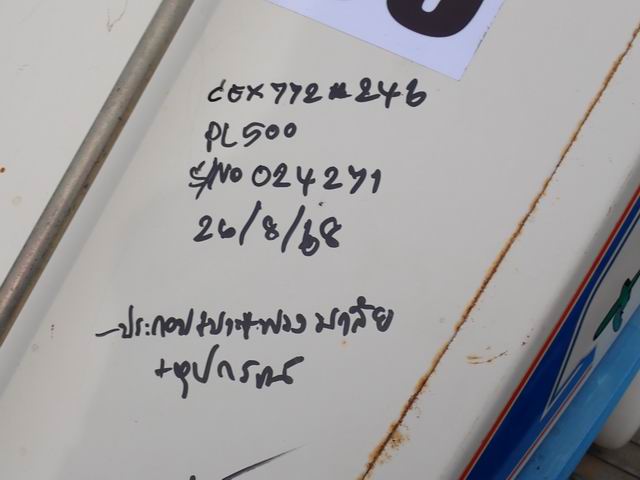 CEX772 246
PL500
S/NO 024271
26/8/68
-ประกอบ พวงมาลัย
+อุปกรณ์